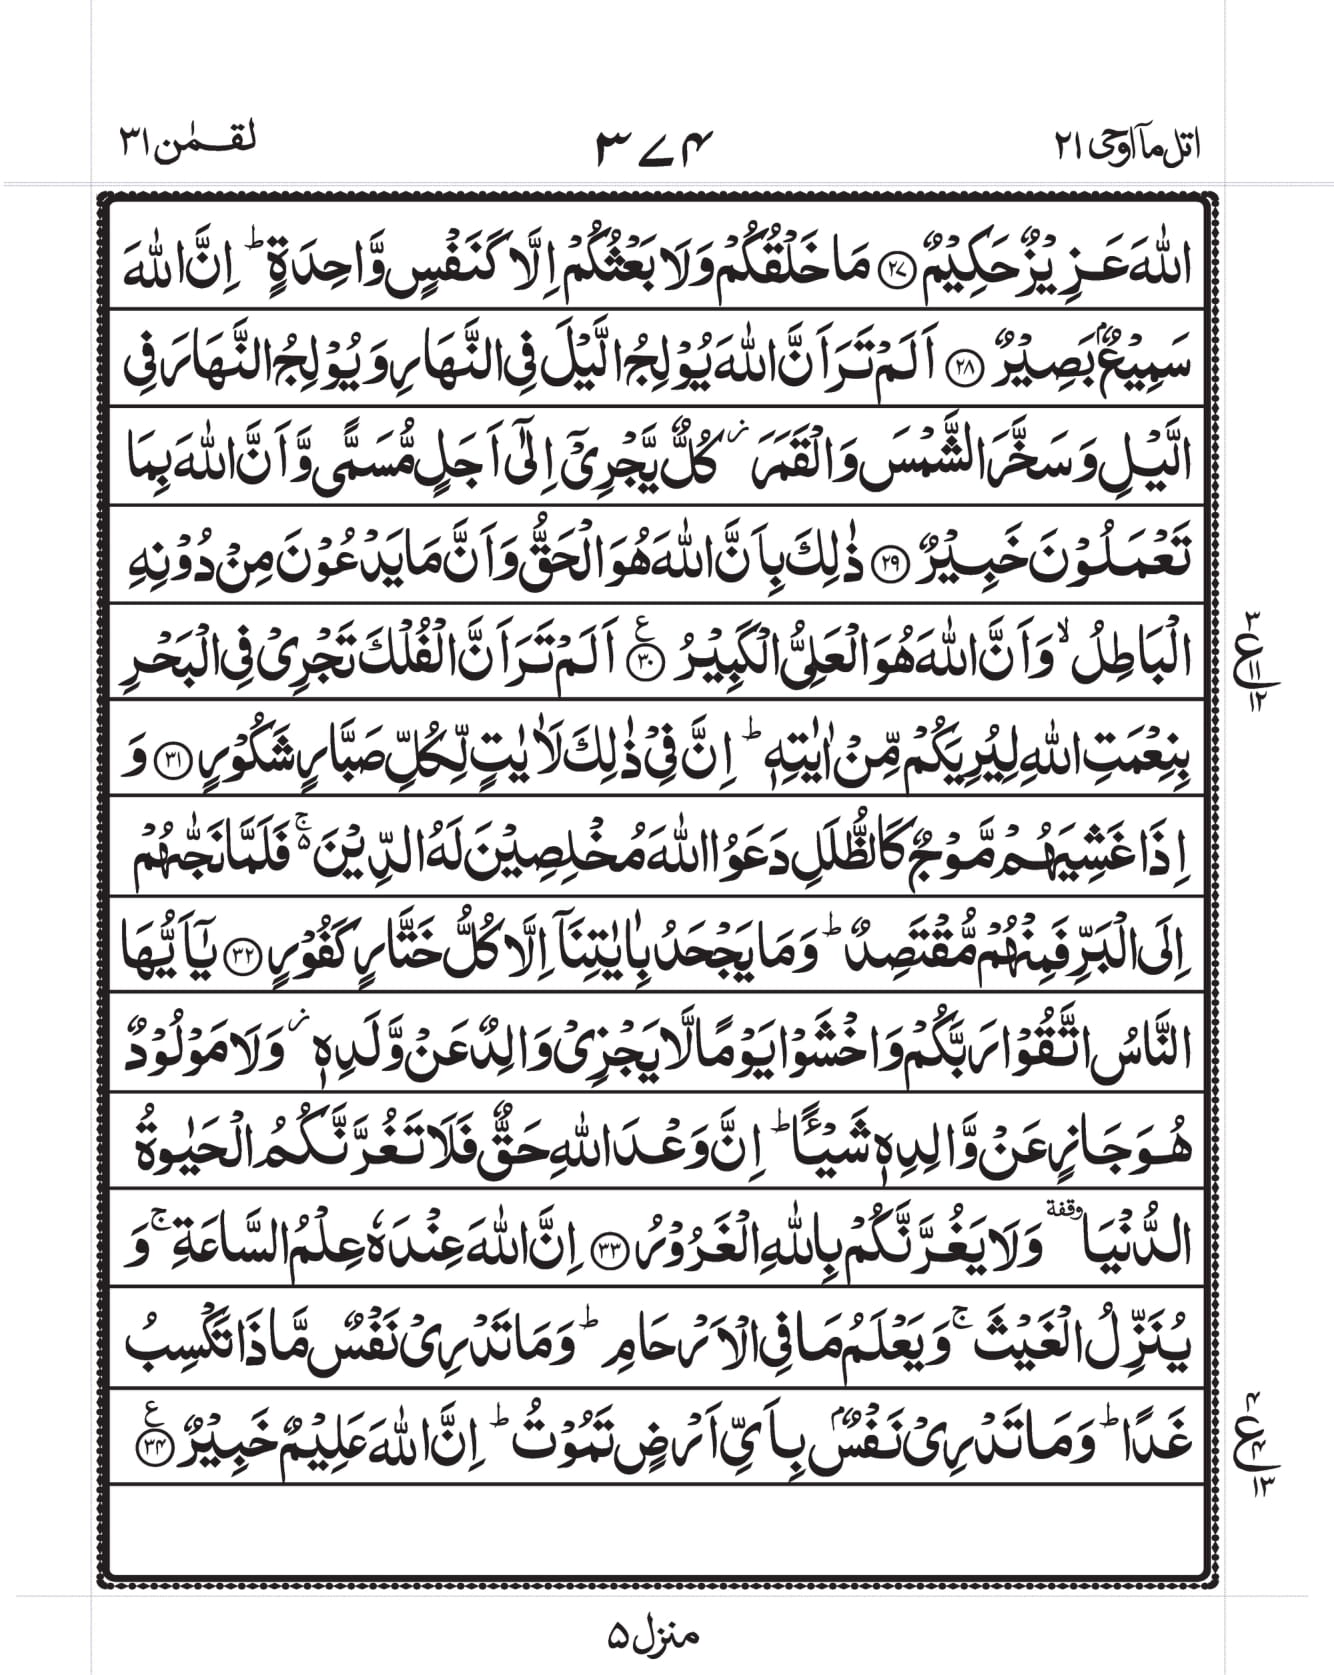 اتل ما اوحی ۲۱
۳۷۴
لقمٰن ۳۱
اللّٰهَ عَزِیْزٌ حَكِیْمٌ ﴿۲۷﴾ مَا خَلْقُكُمْ وَلَا بَعْثُكُمْ اِلَّا كَنَفْسٍ وَّاحِدَةٍ ؕ اِنَّ اللّٰهَ
سَمِیْعٌۢ بَصِیْرٌ ﴿۲۸﴾ اَلَمْ تَرَ اَنَّ اللّٰهَ یُوْلِجُ الَّیْلَ فِی النَّهَارِ وَیُوْلِجُ النَّهَارَ فِی
الَّیْلِ وَسَخَّرَ الشَّمْسَ وَالْقَمَرَ ؗ كُلٌّ یَّجْرِیْۤ اِلٰۤی اَجَلٍ مُّسَمًّی وَّاَنَّ اللّٰهَ بِمَا
تَعْمَلُوْنَ خَبِیْرٌ ﴿۲۹﴾ ذٰلِكَ بِاَنَّ اللّٰهَ هُوَ الْحَقُّ وَاَنَّ مَا یَدْعُوْنَ مِنْ دُوْنِهِ
الْبَاطِلُ ۙ وَاَنَّ اللّٰهَ هُوَ الْعَلِیُّ الْكَبِیْرُ ﴿۳۰﴾ ع اَلَمْ تَرَ اَنَّ الْفُلْكَ تَجْرِیْ فِی الْبَحْرِ
۳
ع
۱۱
۱۲
بِنِعْمَتِ اللّٰهِ لِیُرِیَكُمْ مِّنْ اٰیٰتِهٖ ؕ اِنَّ فِیْ ذٰلِكَ لَاٰیٰتٍ لِّكُلِّ صَبَّارٍ شَكُوْرٍ ﴿۳۱﴾ وَ
اِذَا غَشِیَهُمْ مَّوْجٌ كَالظُّلَلِ دَعَوُا اللّٰهَ مُخْلِصِیْنَ لَهُ الدِّیْنَ ۚ۵ فَلَمَّا نَجّٰىهُمْ
اِلَی الْبَرِّ فَمِنْهُمْ مُّقْتَصِدٌ ؕ وَمَا یَجْحَدُ بِاٰیٰتِنَاۤ اِلَّا كُلُّ خَتَّارٍ كَفُوْرٍ ﴿۳۲﴾ یٰۤاَیُّهَا
النَّاسُ اتَّقُوْا رَبَّكُمْ وَاخْشَوْا یَوْمًا لَّا یَجْزِیْ وَالِدٌ عَنْ وَّلَدِهٖ ؗ وَلَا مَوْلُوْدٌ
هُوَ جَازٍ عَنْ وَّالِدِهٖ شَیْـًٔا ؕ اِنَّ وَعْدَ اللّٰهِ حَقٌّ فَلَا تَغُرَّنَّكُمُ الْحَیٰوةُ
الدُّنْیَا وقفة وَلَا یَغُرَّنَّكُمْ بِاللّٰهِ الْغَرُوْرُ ﴿۳۳﴾ اِنَّ اللّٰهَ عِنْدَهٗ عِلْمُ السَّاعَةِ ۚ وَ
یُنَزِّلُ الْغَیْثَ ۚ وَیَعْلَمُ مَا فِی الْاَرْحَامِ ؕ وَمَا تَدْرِیْ نَفْسٌ مَّاذَا تَكْسِبُ
غَدًا ؕ وَمَا تَدْرِیْ نَفْسٌۢ بِاَیِّ اَرْضٍ تَمُوْتُ ؕ اِنَّ اللّٰهَ عَلِیْمٌ خَبِیْرٌ ﴿۳۴﴾ ع
۴
ع
۴
۱۳
منزل ۵